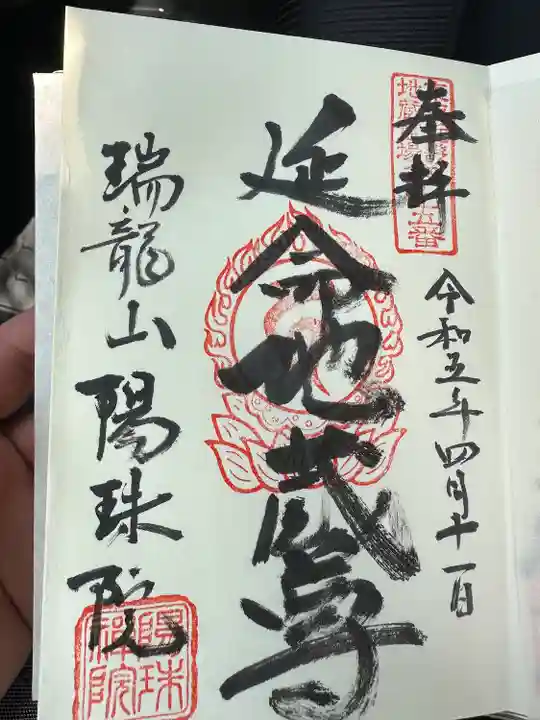 奉拝
令和五年四月十一日
延命地蔵尊
瑞龍山陽珠院
陽珠
禅院